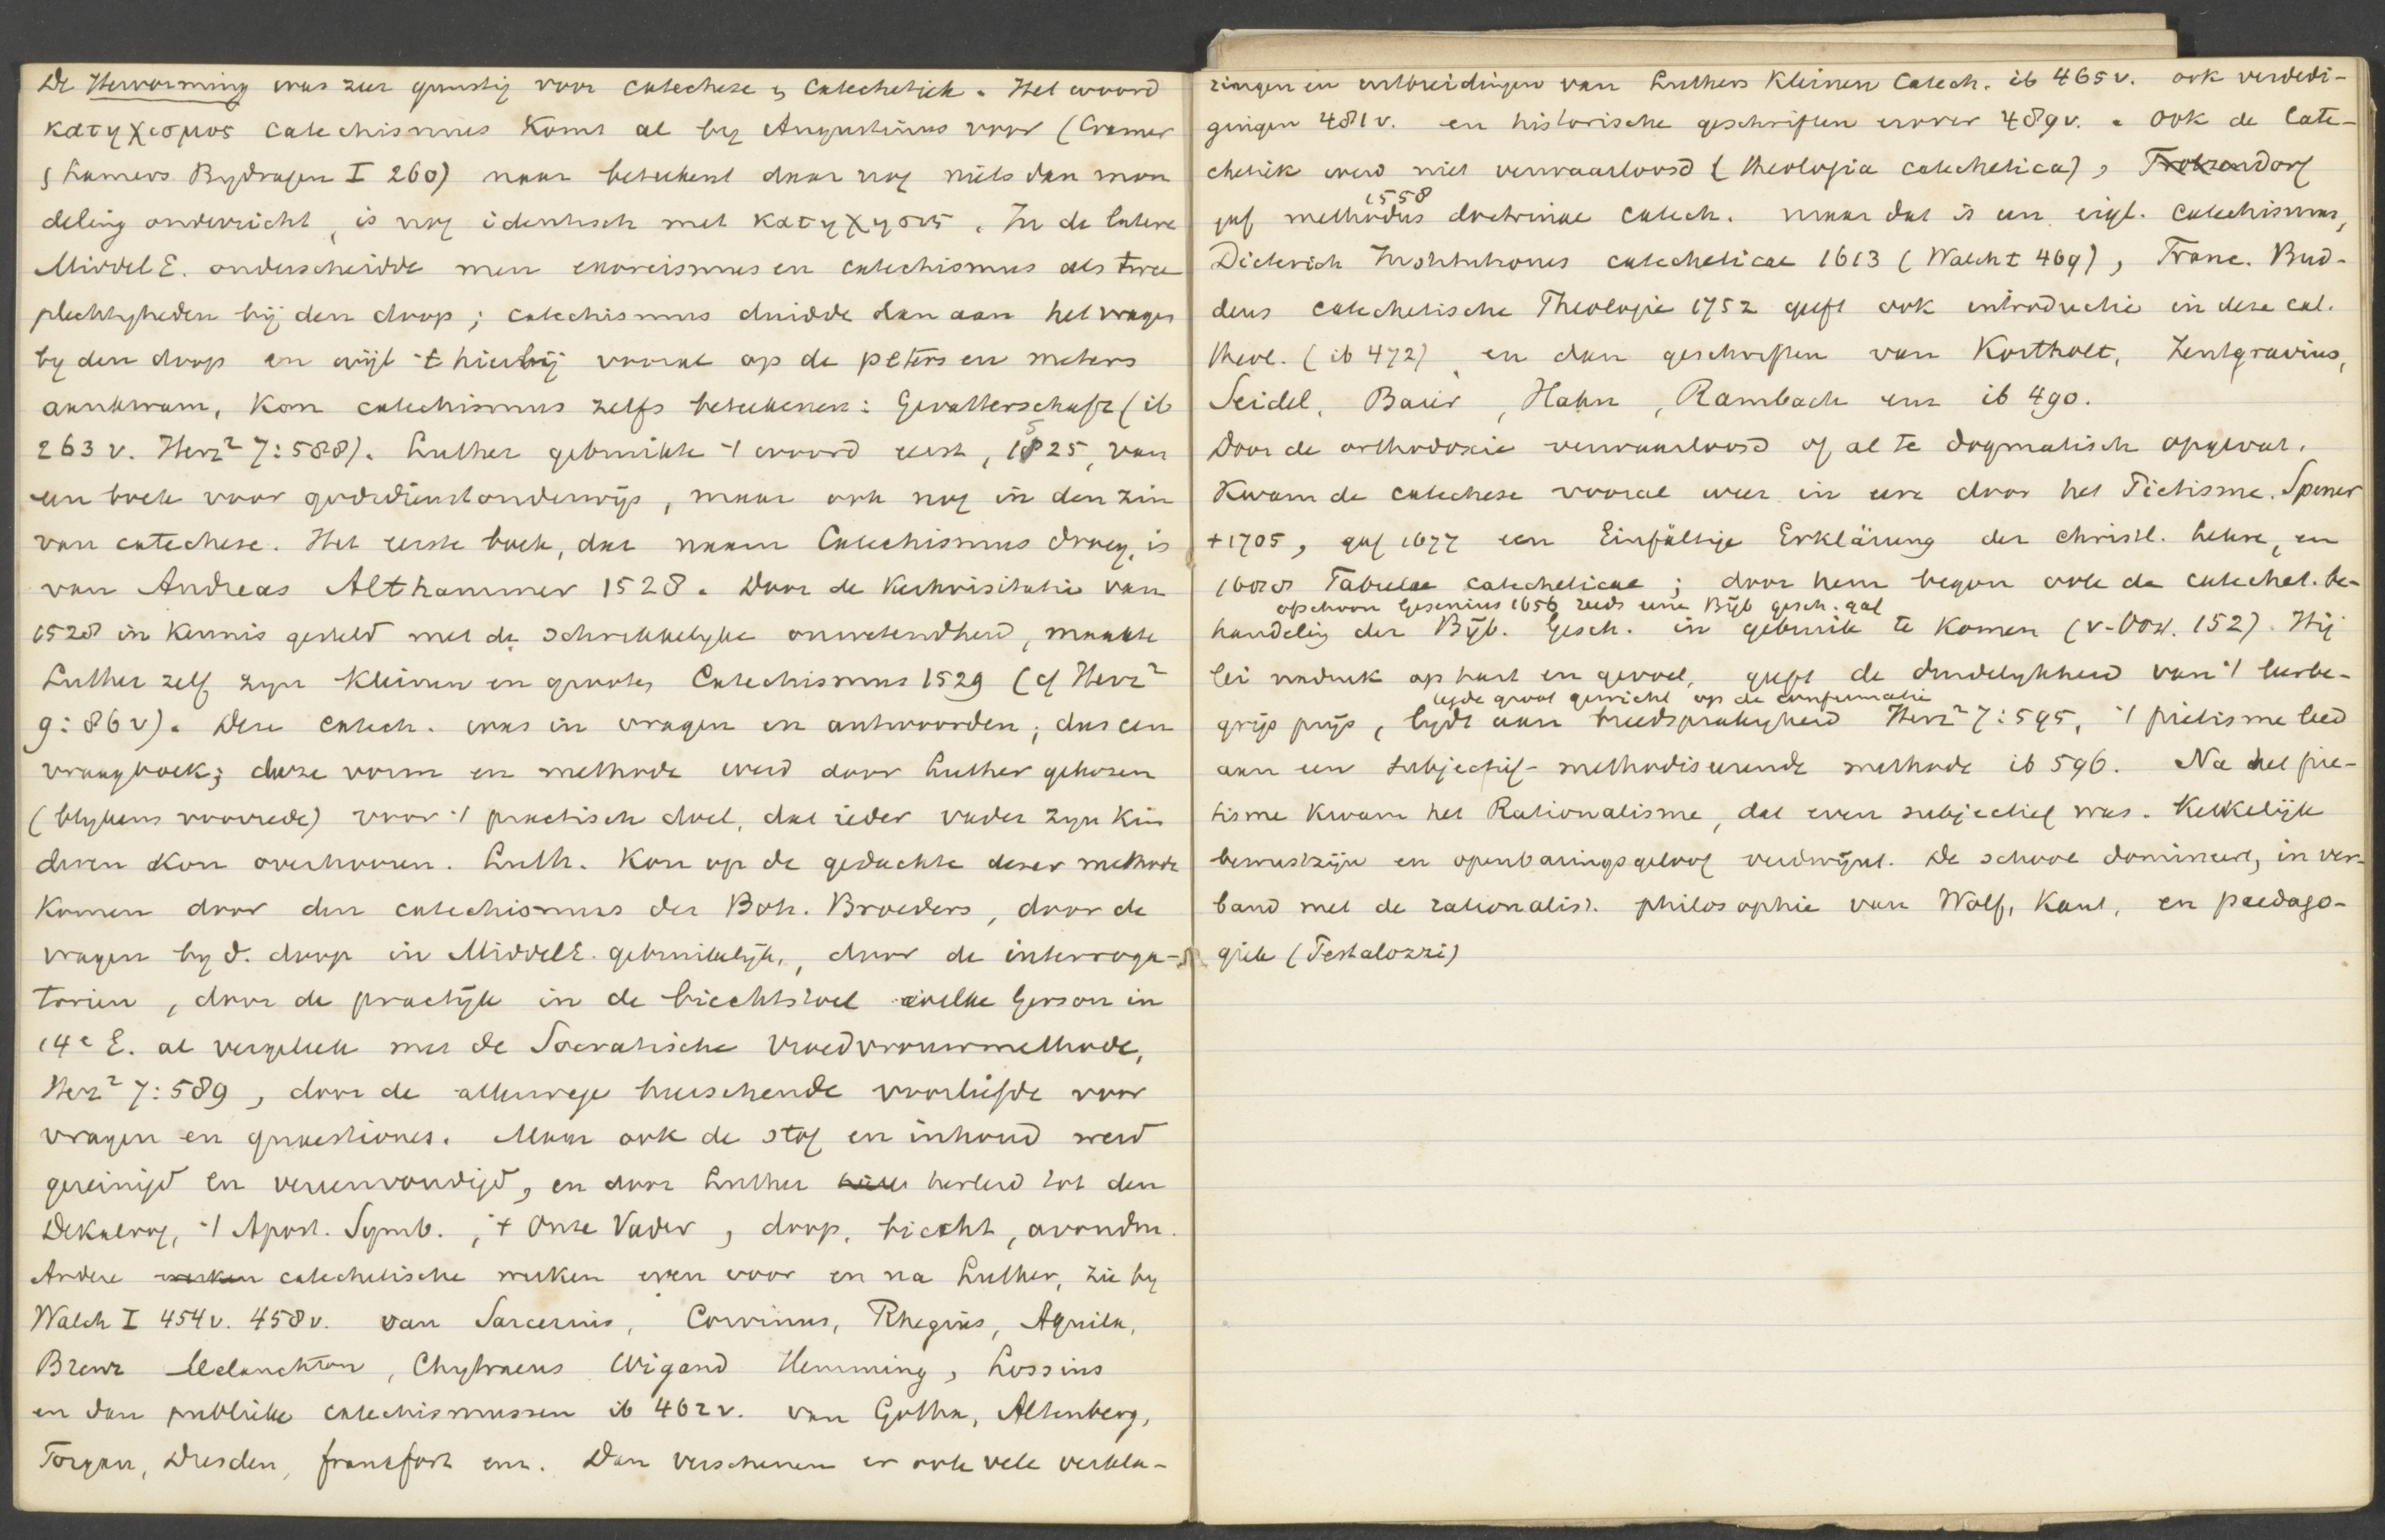 De Hervorming was zeer gunstig voor catechese & catechetiek. Het woord
κατηχισμος catechismus komt al by Augustinus voor (Cramer
& Lamers Bydragen I 260) maar beteekent daar nog niets dan mon
deling onderricht, is nog identisch met κατηχησις. In de latere
MiddelE. onderscheidde men exorcismus en catechismus als twee
plechtigheden bij den doop; catechismus duidde dan aan het vragen
by den doop en wijl 't hierbij vooral op de peters en meters
aankwam, kon catechismus zelfs beteekenen: Gevatterschaft (ib
263 v. Herz² 7:588). Luther gebruikte 't woord eerst, 1525, van
een boek voor godsdienstonderwijs, maar ook nog in den zin
van catechese. Het eerste boek, dat naam Catechismus droeg, is
van Andreas Althammer 1528. Door de Kerkvisitatie van
1528 in kennis gesteld met de schrikkelyke onwetendheid, maakte
Luther zelf zyn kleinen en grooten Catechismus 1529 (cf Herz²
9:86v). Deze catech. was in vragen en antwoorden; dus een
vraagboek; deze vorm en methode werd door Luther gekozen
(blykens voorrede) voor 't practisch doel, dat ieder vader zyn kin
deren kon overhooren. Luth. kon op de gedachte dezer methode
komen door den catechismus der Boh. Broeders, door de
vragen by d. doop in MiddelE. gebruikelijk, door de interroga-
torien, door de practijk in de biechtstoel welke Gerson in
14e E. al vergeleek met de Socratische vroedvrouwmethode,
Herz² 7:589, door de allerwege heerschende voorliefde voor
vragen en quaestiones. Maar ook de stof en inhoud werd
gereinigd en vereenvoudigd, en door Luther herleid tot den
Dekaloog, 't Apost. Symb., 't Onze Vader, doop, biecht, avondm.
Andere werken catechetische werken even voor en na Luther, zie by
Walch I 454v. 458v. van Sarcerius, Corvinus, Rhegius, Aquila,
Brenz Melanchton, Chytraeus Wigand Hemming, Lossius
en dan publieke catechismussen ib 462v. van Gotha, Altenberg,
Torgau, Dresden, Frankfort enz. Dan verschenen er ook vele verkla-
ringen en uitbreidingen van Luthers Kleinen Catech. ib 465v. ook verdedi-
gingen 481v. en historische geschriften erover 489v. Ook de Cate-
chetiek werd niet verwaarloosd (theologia catechetica), Trotzendorf
1558
gaf methodus doctrinae catech. maar dat is een eigl. catechismus,
Dieterich Institutiones catecheticae 1613 (Walch I 469), Franc. Bud-
deus catechetische Theologie 1752 geeft ook introductie in deze cat.
theol. (ib 472) en dan geschriften van Kortholt, Zentgravius,
Seidel, Baier, Hahn, Rambach enz ib 490.
Door de orthodoxie verwaarloosd of al te dogmatisch opgevat.
Kwam de catechese vooral weer in eere door het Pietisme. Spener
+1705, gaf 1677 een Einfältige Erklärung der christl. Lehre, en
1688 Tabulae catecheticae; door hem begon ook de catechet. be-
ofschoon Gesenius 1656 reeds eene Bijb gesch. gaf
handelig der Bijb. Gesch. in gebruik te komen (v-Oost. 152). Hij
lei nadruk op hart en gevoel, geeft de duidelykheid van 't leerbe-
legde groot gewicht op de confirmatie
grijp prijs, lydt aan breedsprakigheid Herz² 7:595, 't pietisme leed
aan een subjectief-methodiseerende methode ib 596. Na het pie-
tisme kwam het Rationalisme, dat even subjectief was. Kerkelijk
bewustzijn en openbaringsgeloof verdwijnt. De school domineert, in ver-
band met de rationalist. philosophie van Wolf, Kant, en paedago-
giek (Pestalozzi)